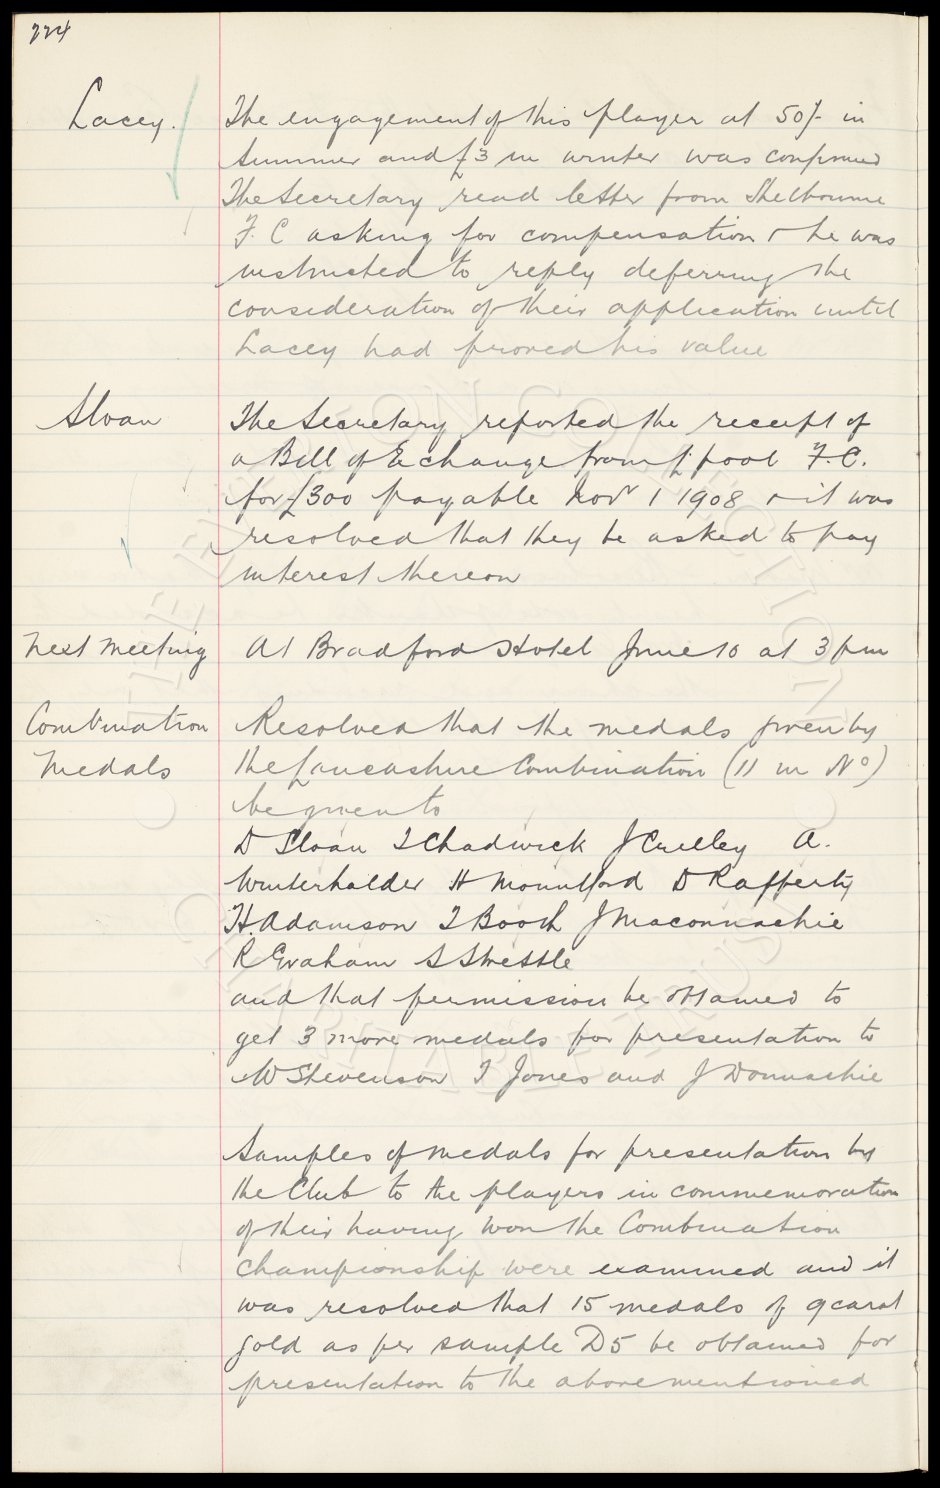 224
Lacey.
The engagement of this player at 50/- in
Summer and £3 in winter was confirmed
The Secretary read letter from Shelbourne
F. C asking for compensation & he was
instructed to reply deferring the
consideration of their application until
Lacey had proved his value
Sloan
The Secretary reported the receipt of
a Bill of Exchange from L'pool F.C.
for £300 payable Novr 1 1908 & it was
resolved that they be asked to pay
interest thereon
Next Meeting
At Bradford Hotel June 10 at 3 pm
Combination
Medals
Resolved that the medals given by
the Lancashire Combination (11 in No)
be given to
D Sloan T Chadwick J Crelley A.
Winterhalder H Mountford D Rafferty
H. Adamson T Booth J Maconnachie
R Graham S Strettle
and that permission be obtained to
get 3 more medals for presentation to
W Stevenson T Jones and J Donnachie
Samples of medals for presentation by
the Club to the players in commemoration
of their having won the Combination
Championship were examined and it
was resolved that 15 medals of 9 carat
gold as per sample D5 be obtained for
presentation to the abovementioned
THE EVERTON COLLECTION
CHARITABLE TRUST